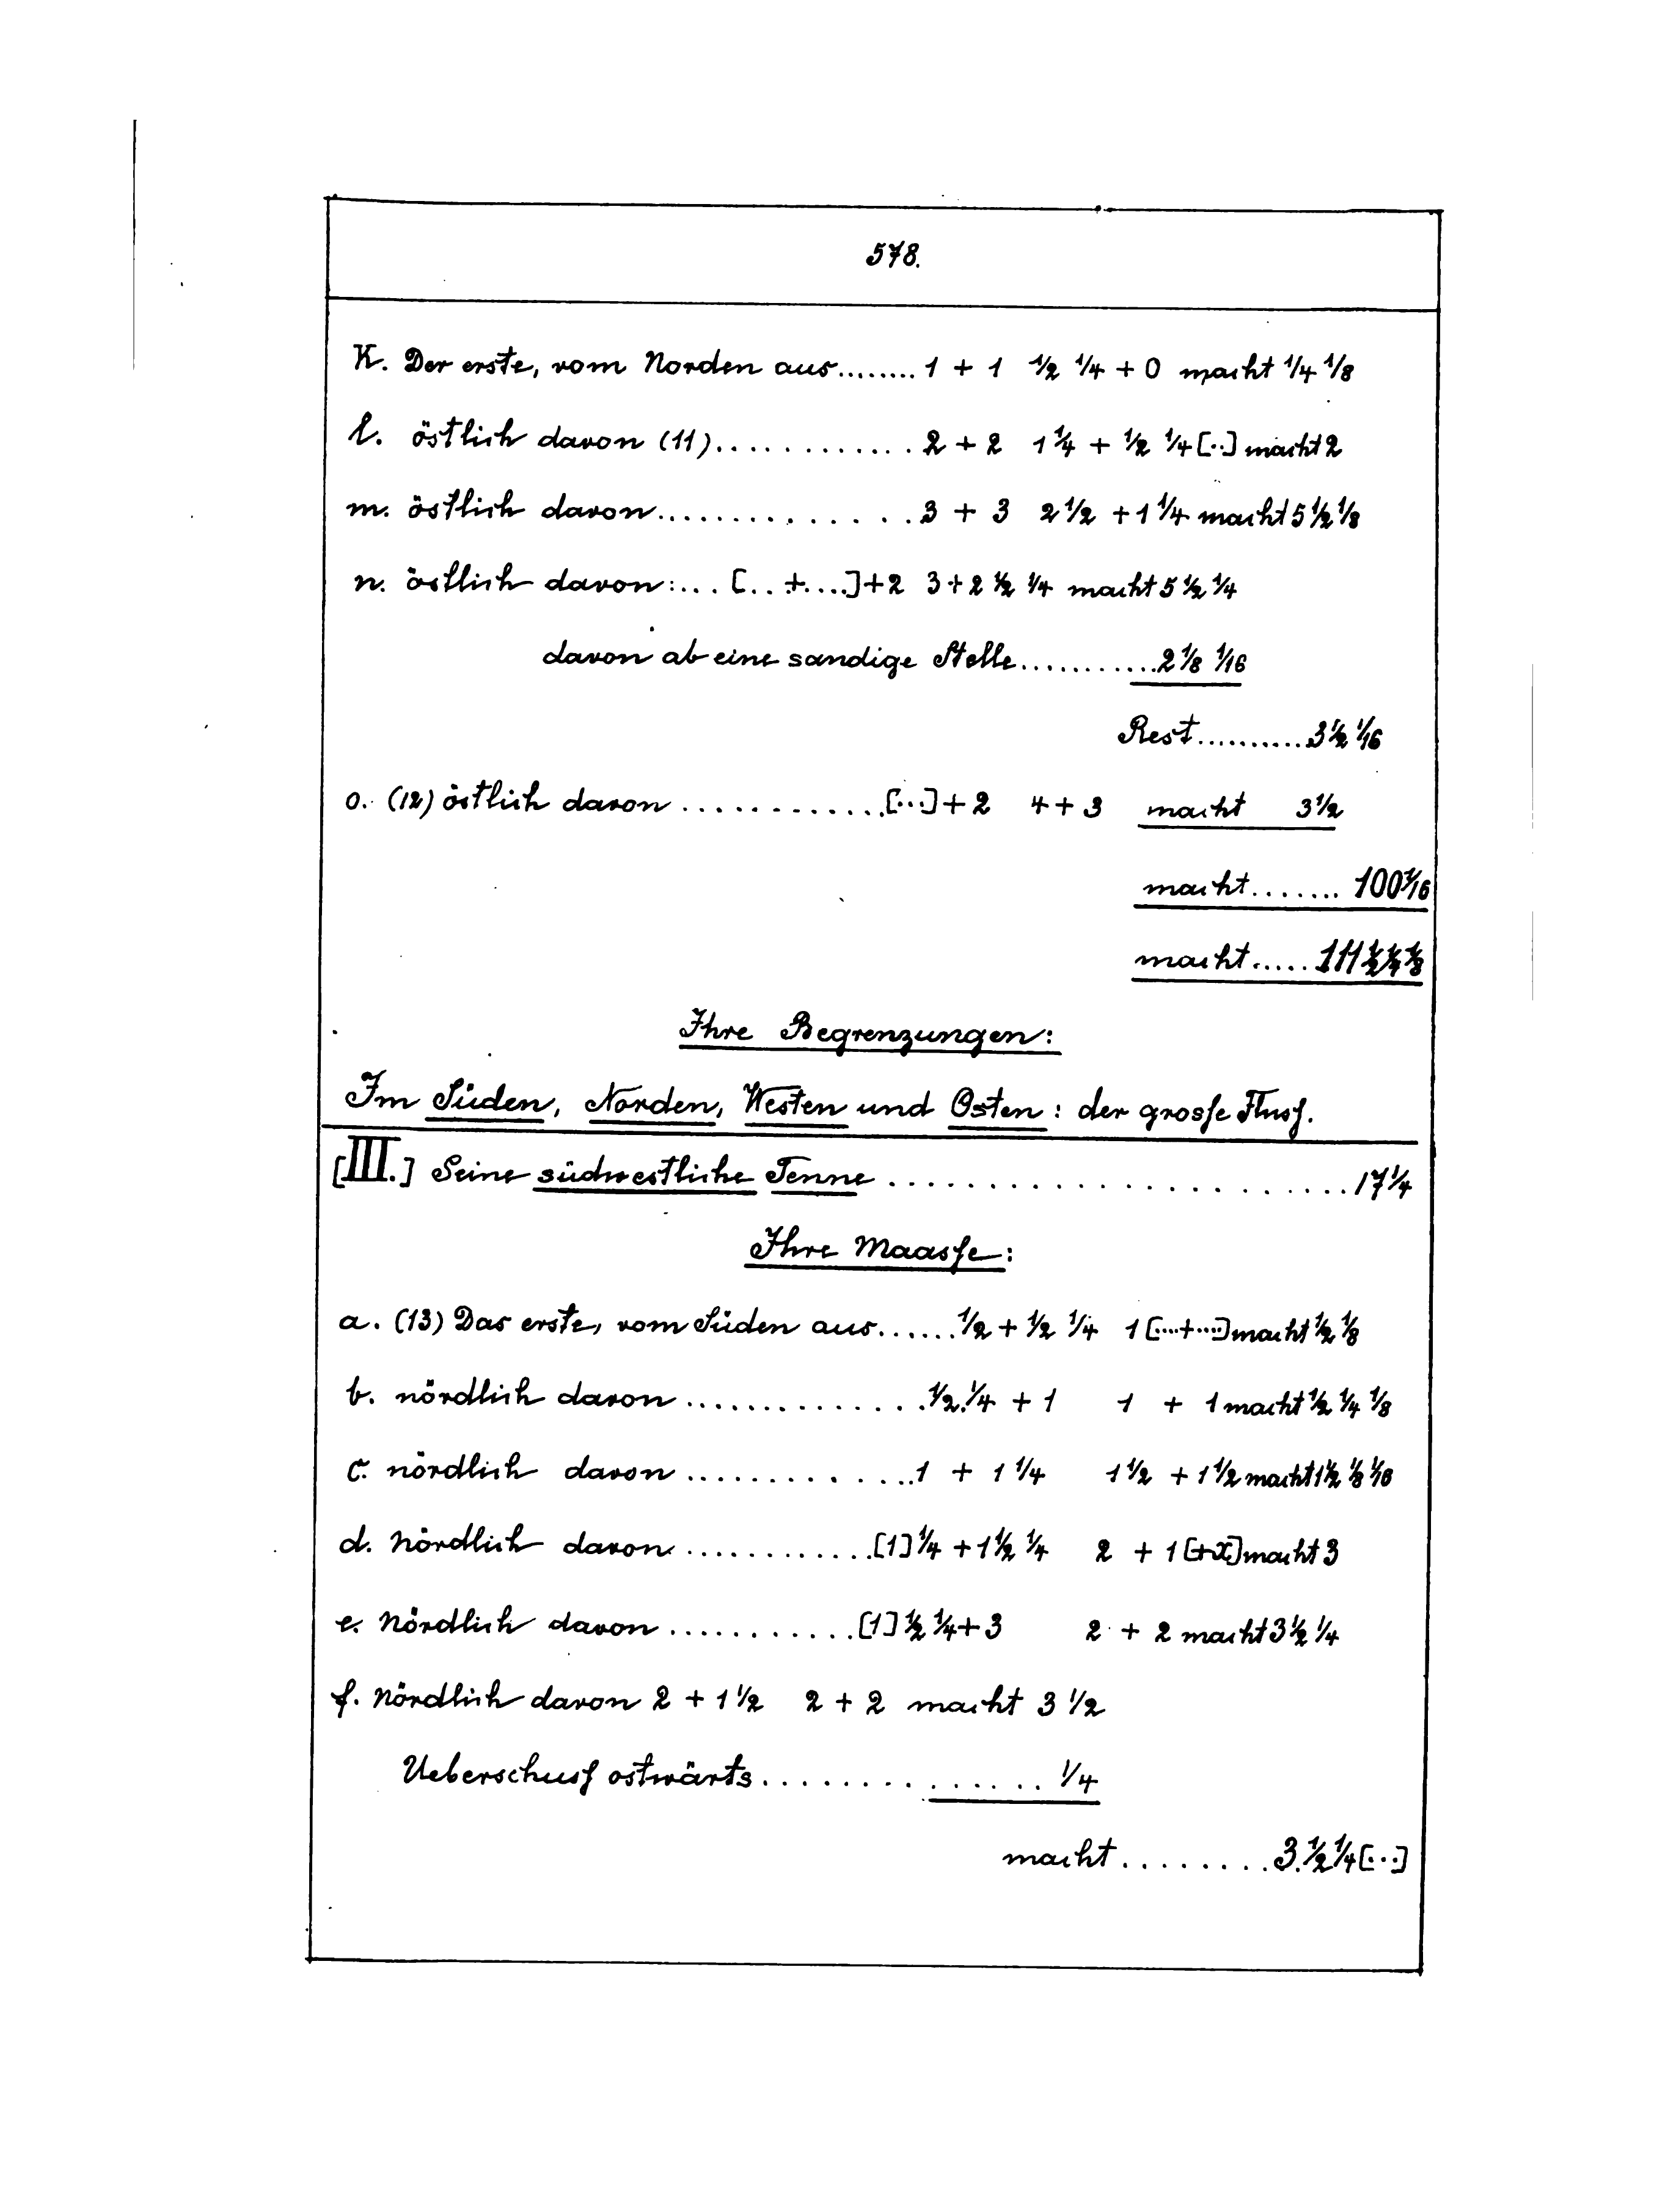 578.
K. Der erste, vom Norden aus........1 + 1 ½ ¼ + 0 macht ¼ ⅛
l. östlich davon (11)............2 + 2 1¼ + ½ ¼ [..] macht 2
m. östlich davon..............3 + 3 2½ + 1¼ macht 5½ ⅛
n. östlich davon:...[..+....]+2 3+2 ½ ¼ macht 5 ½ ¼
davon ab eine sandige Stelle...........2⅛ 1/16
Rest...........3½ 1/16
o. (12) östlich davon............[...]+2 4+3 macht 3½
macht....... 100 1/16
macht.....111 ½ ¼ ⅛
Ihre Begrenzungen:
Im Süden, Norden, Westen und Osten: der grosse Fluss.
[III.] Seine südwestliche Tenne.......................17¼
Ihre Maasse:
a. (13) Das erste, vom Süden aus......½ + ½ ¼ 1 [....+....] macht ½ ⅛
b. nördlich davon..............½ ¼ + 1 1 + 1 macht ½ ¼ ⅛
c. nördlich davon.............1 + 1 ¼ 1½ + 1½ macht 1½ ⅛ 1/16
d. Nördlich davon............[1] ¼ + 1½ ¼ 2 + 1 [+x] macht 3
e. Nördlich davon...........[1] ½ ¼ + 3 2 + 2 macht 3½ ¼
f. Nördlich davon 2 + 1½ 2 + 2 macht 3 ½
Ueberschuss ostwärts............... ¼
macht........3.½ ¼ [...]